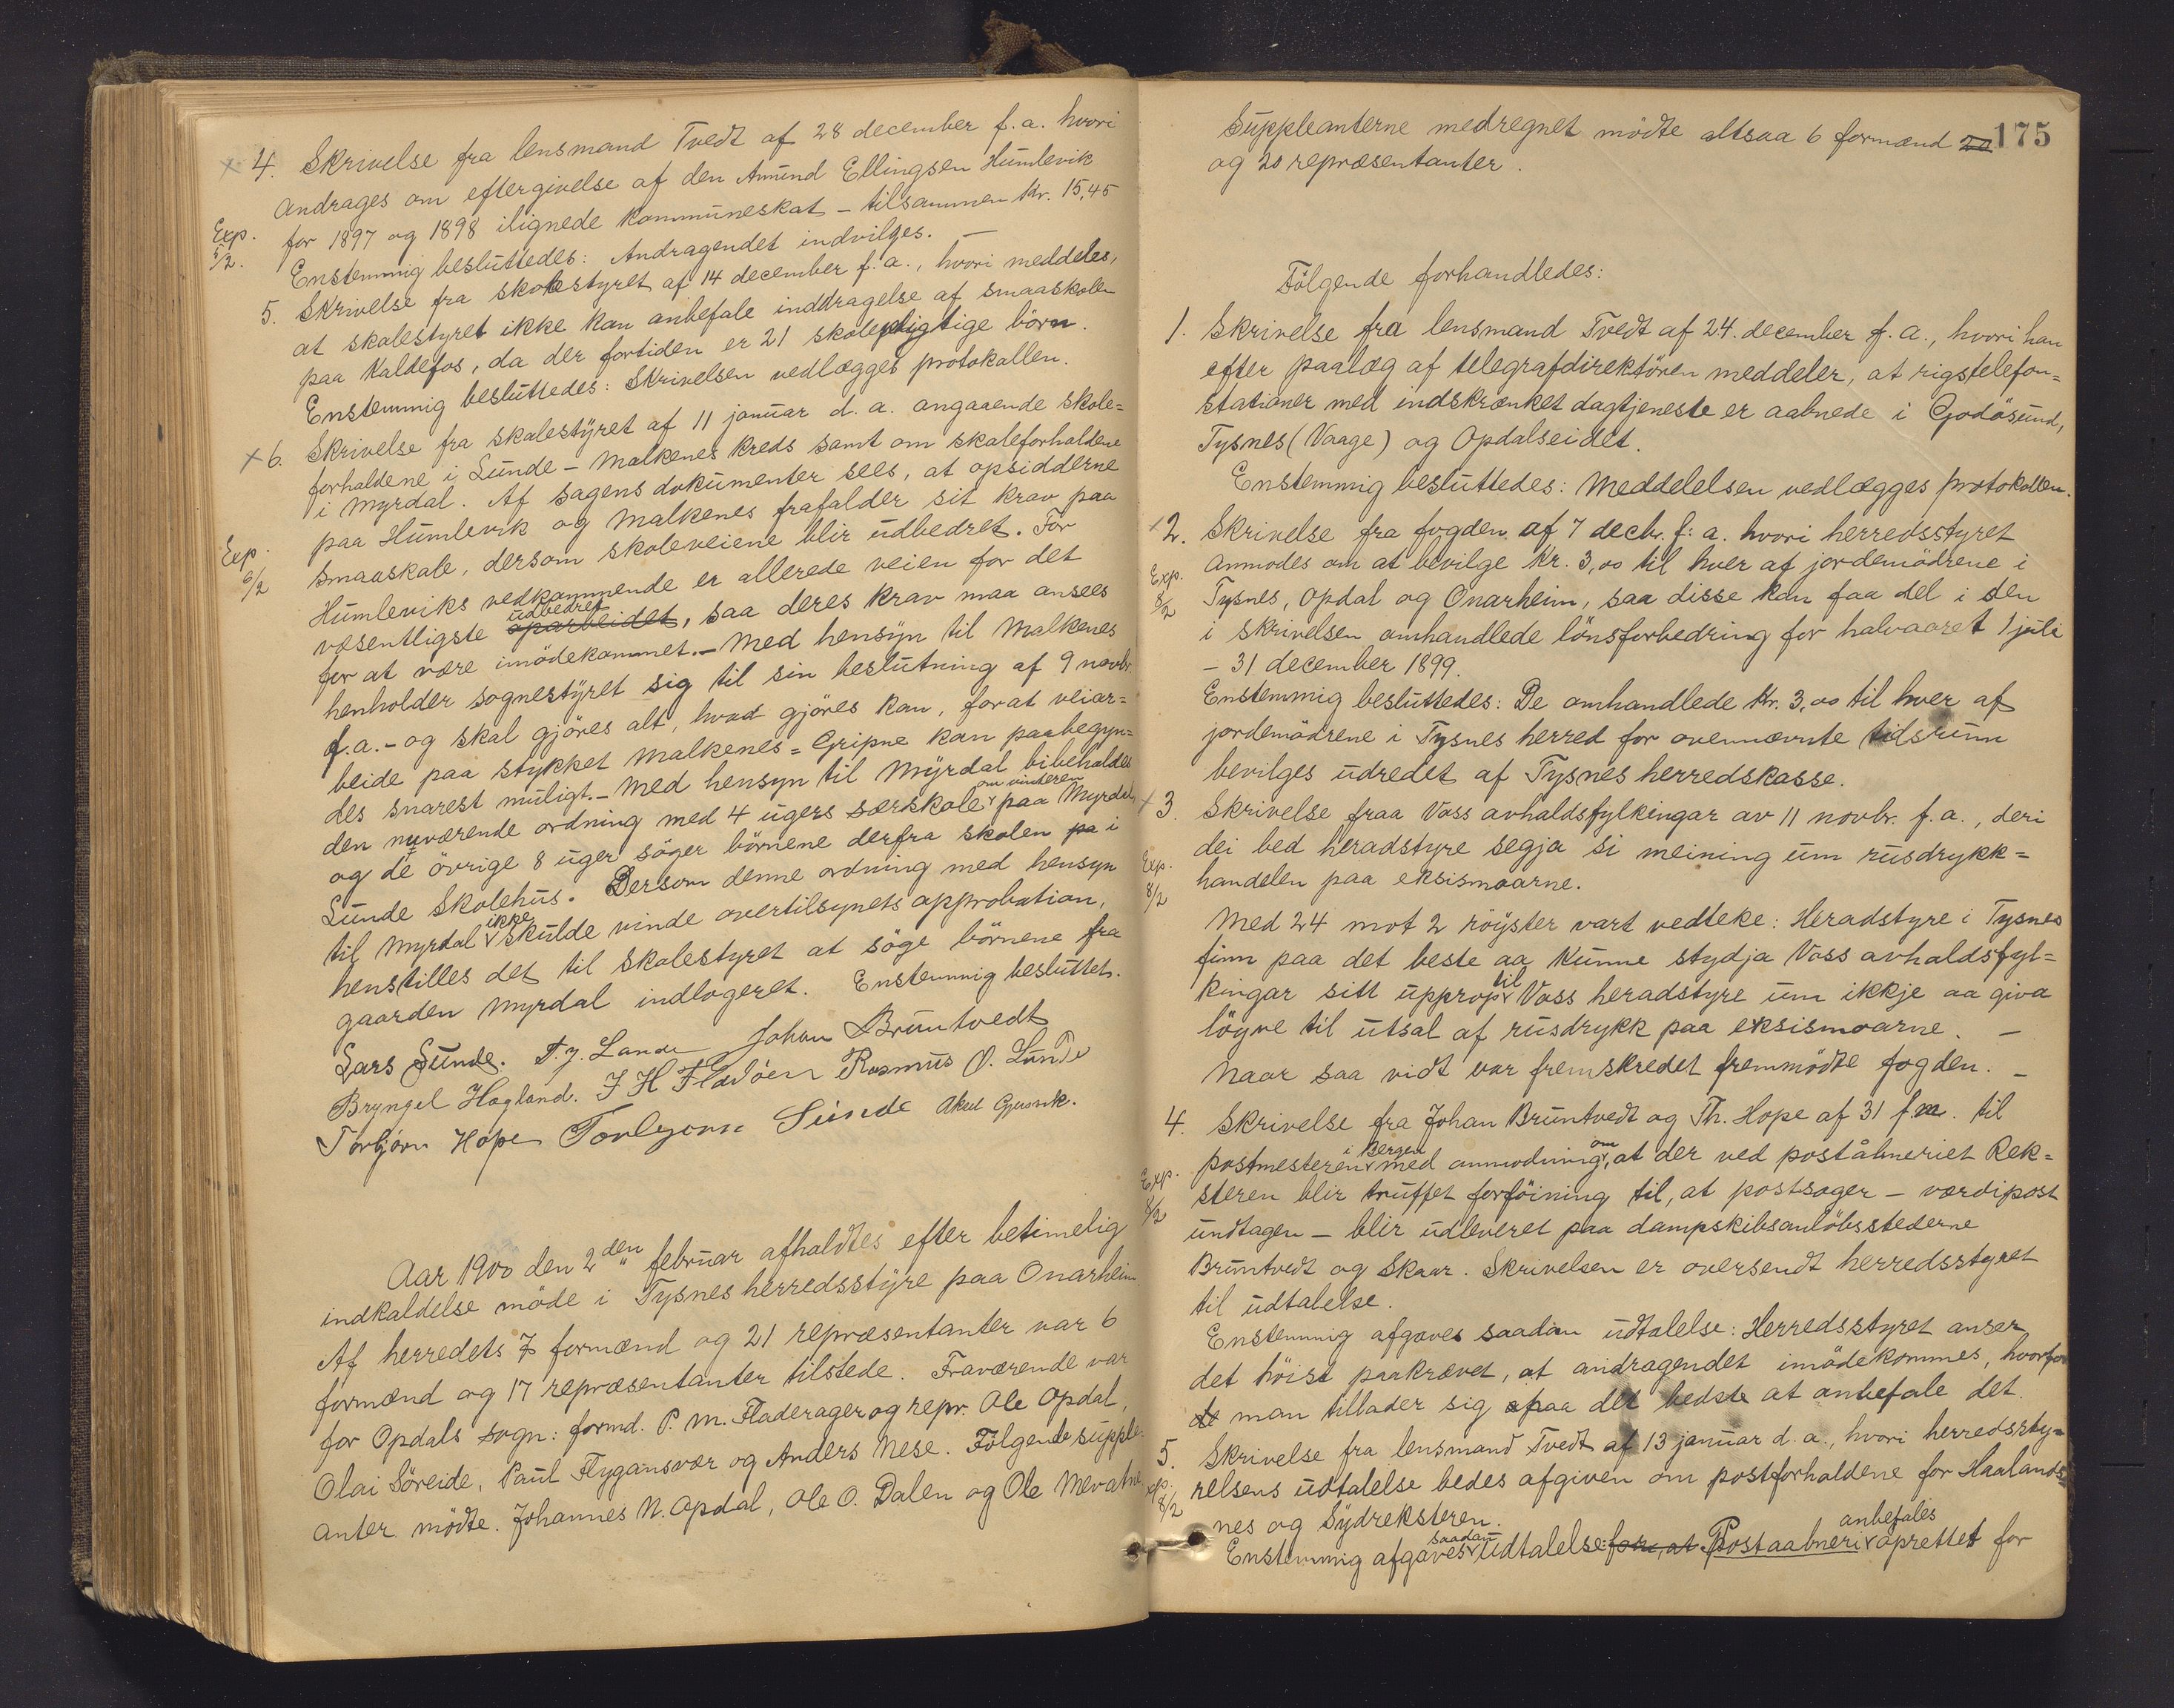 × 4. Skrivelse fra lensmand Tvedt af 28 december f. a. hvori
andrages om eftergivelse af den Amund Ellingsen Humlevik
Exp. 5/2. for 1897 og 1898 ilignede kommuneskat – tilsammen kr. 15,45
Enstemmig besluttedes: Andragendet indvilges. –
5. Skrivelse fra skolestyret af 14 december f. a., hvori meddeles,
at skolestyret ikke kan anbefale inddragelse af smaaskolen
paa Kaldefos, da der fortiden er 21 skolepligtige børn.
Enstemmig besluttedes: Skrivelsen vedlægges protokollen.
× 6. Skrivelse fra skolestyret af 11 januar d. a. angaaende skole=
forholdene i Sunde – Malkenes kreds samt om skoleforholdene
i Myrdal. Af sagens dokumenter sees, at opsidderne
paa Humlevik og Malkenes frafalder sit krav paa
Exp. 6/2 smaaskole, dersom skoleveiene blir udbedret. For
Humleviks vedkommende er allerede veien for det
væsentligste oparbeidet udbedret, saa deres krav maa ansees
for at være imødekommet. – Med hensyn til Malkenes
henholder sognestyret sig til sin beslutning af 9 novbr.
f. a. – og skal gjøres alt, hvad gjøres kan, forat veiar=
beide paa stykket Malkenes = Gripne kan paabegyn=
des snarest muligt. – Med hensyn til Myrdal bibeholdes
den nuværende ordning med 4 ugers særskole om vinteren paa Myrdal,
og de øvrige 8 uger søger børnene derfra skolen pa i
Sunde Skolehus. Dersom denne ordning med hensyn
til Myrdal ikke skulde vinde overtilsynets approbation,
henstilles det til skolestyret at søge børnene fra
gaarden Myrdal indlogeret. Enstemmig besluttet.
Lars Sunde. T. J. Lande Johan Bruntvedt
Bryngel Hagland. J H Fladøen Rasmus O. Lunde
Torbjørn Hope Torbjørn Sunde Aksel Gjersvik.
Aar 1900 den 2den februar afholdtes efter betimelig
indkaldelse møde i Tysnes herredsstyre paa Onarheim
Af herredets 7 formænd og 21 repræsentanter var 6
formænd og 17 repræsentanter tilstede. Fraværende var
for Opdals sogn: formd. P. M. Fladerager og repr. Ole Opdal,
Olai Søreide, Paul Flygansvær og Anders Nese. Følgende supple-
anter mødte. Johannes N. Opdal, Ole O. Dalen og Ole Mevatne
175
Suppleanterne medregnet mødte altsaa 6 formænd 20
og 20 repræsentanter.
Følgende forhandledes:
1. Skrivelse fra lensmand Tvedt af 24. december f. a., hvori han
efter paalæg af telegrafdirektøren meddeler, at rigstelefon=
stationer med indskrænket dagtjeneste er aabnede i Godøsund,
Tysnes (Vaage) og Opdalseidet.
Enstemmig besluttedes: Meddelelsen vedlægges protokollen.
× 2. Skrivelse fra fogden af 7 decbr. f. a. hvori herredsstyret
Exp. 8/2 anmodes om at bevilge kr. 3,00 til hver af jordemødrene i
Tysnes, Opdal og Onarheim, saa disse kan faa del i den
i skrivelsen omhandlede lønsforbedring for halvaaret 1 juli
– 31 december 1899.
Enstemmig besluttedes: De omhandlede kr. 3,00 til hver af
jordemødrene i Tysnes herred for ovennævnte tidsrum
bevilges udredet af Tysnes herredskasse.
× 3. Skrivelse fraa Voss avhaldsfylkingar av 11 novbr. f. a., deri
dei bed heradstyre segja si meining um rusdrykk=
Exp. 8/2 handelen paa eksismoarne.
Med 24 mot 2 røyster vart vedteke: Heradstyre i Tysnes
finn paa det beste aa kunne stydja Voss avhaldsfyl=
kingar sitt upprop til Voss heradstyre um ikkje aa giva
løyve til utsal af rusdrykk paa eksismoarne. –
Naar saa vidt var fremskredet fremmødte fogden. –
4. Skrivelse fra Johan Bruntvedt og Th. Hope af 31 f. m. til
postmesteren i Bergen med anmodning om, at der ved poståbneriet Rek=
Exp. 8/2 steren blir truffet forføining til, at postsager – værdipost
undtagen – blir udleveret paa dampskibsanløbsstederne
Bruntvedt og Skaar. Skrivelsen er oversendt herredsstyret
til udtalelse.
Enstemmig afgaves saadan udtalelse: Herredsstyret anser
det høist paakrævet, at andragendet imødekommes, hvorfor
de man tillader sig paa det bedste at anbefale det.
5. Skrivelse fra lensmand Tvedt af 13 januar d. a., hvori herredssty=
Exp. 8/2 relsens udtalelse bedes afgiven om postforholdene for Haalands=
nes og Sydreksteren.
Enstemmig afgaves saadan udtalelse: for, at Postaabneri anbefales oprettet for